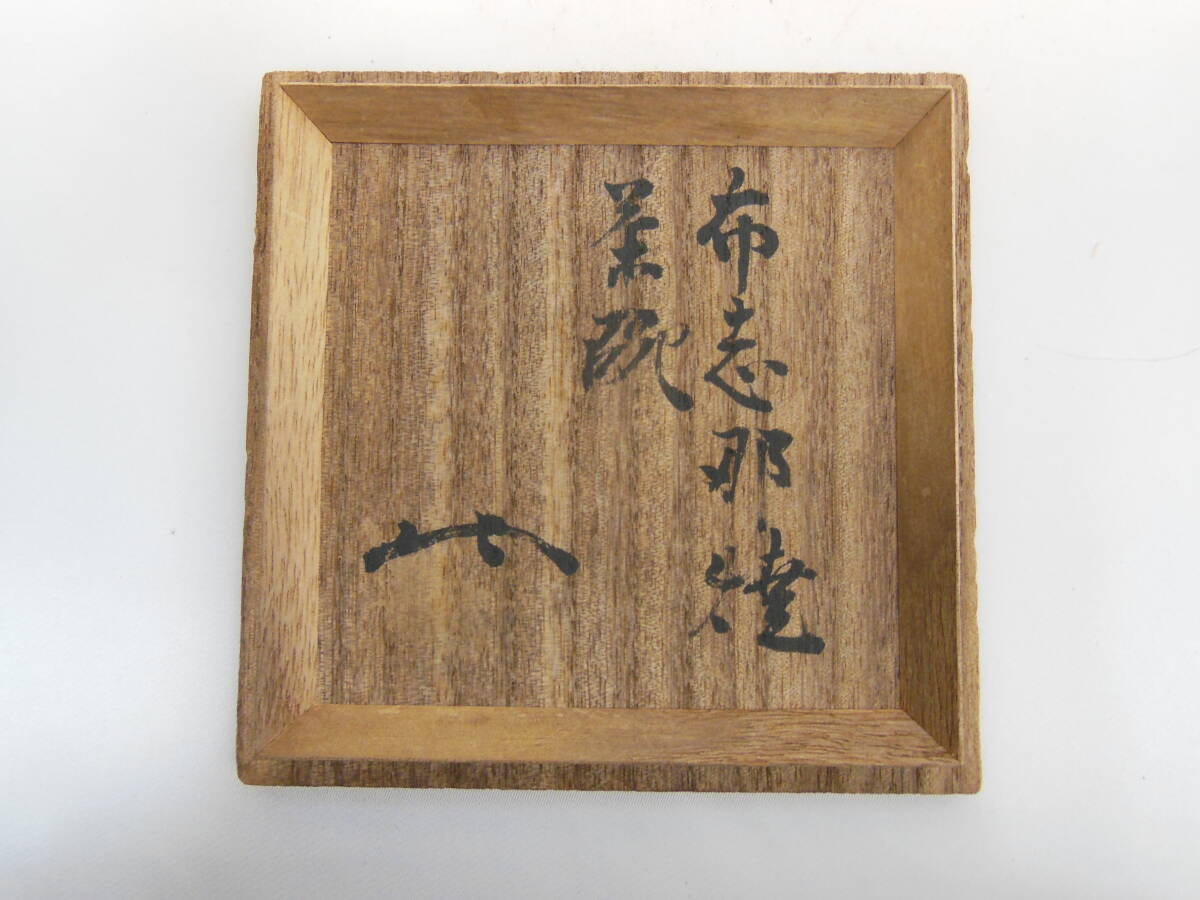 布志那焼
茶碗